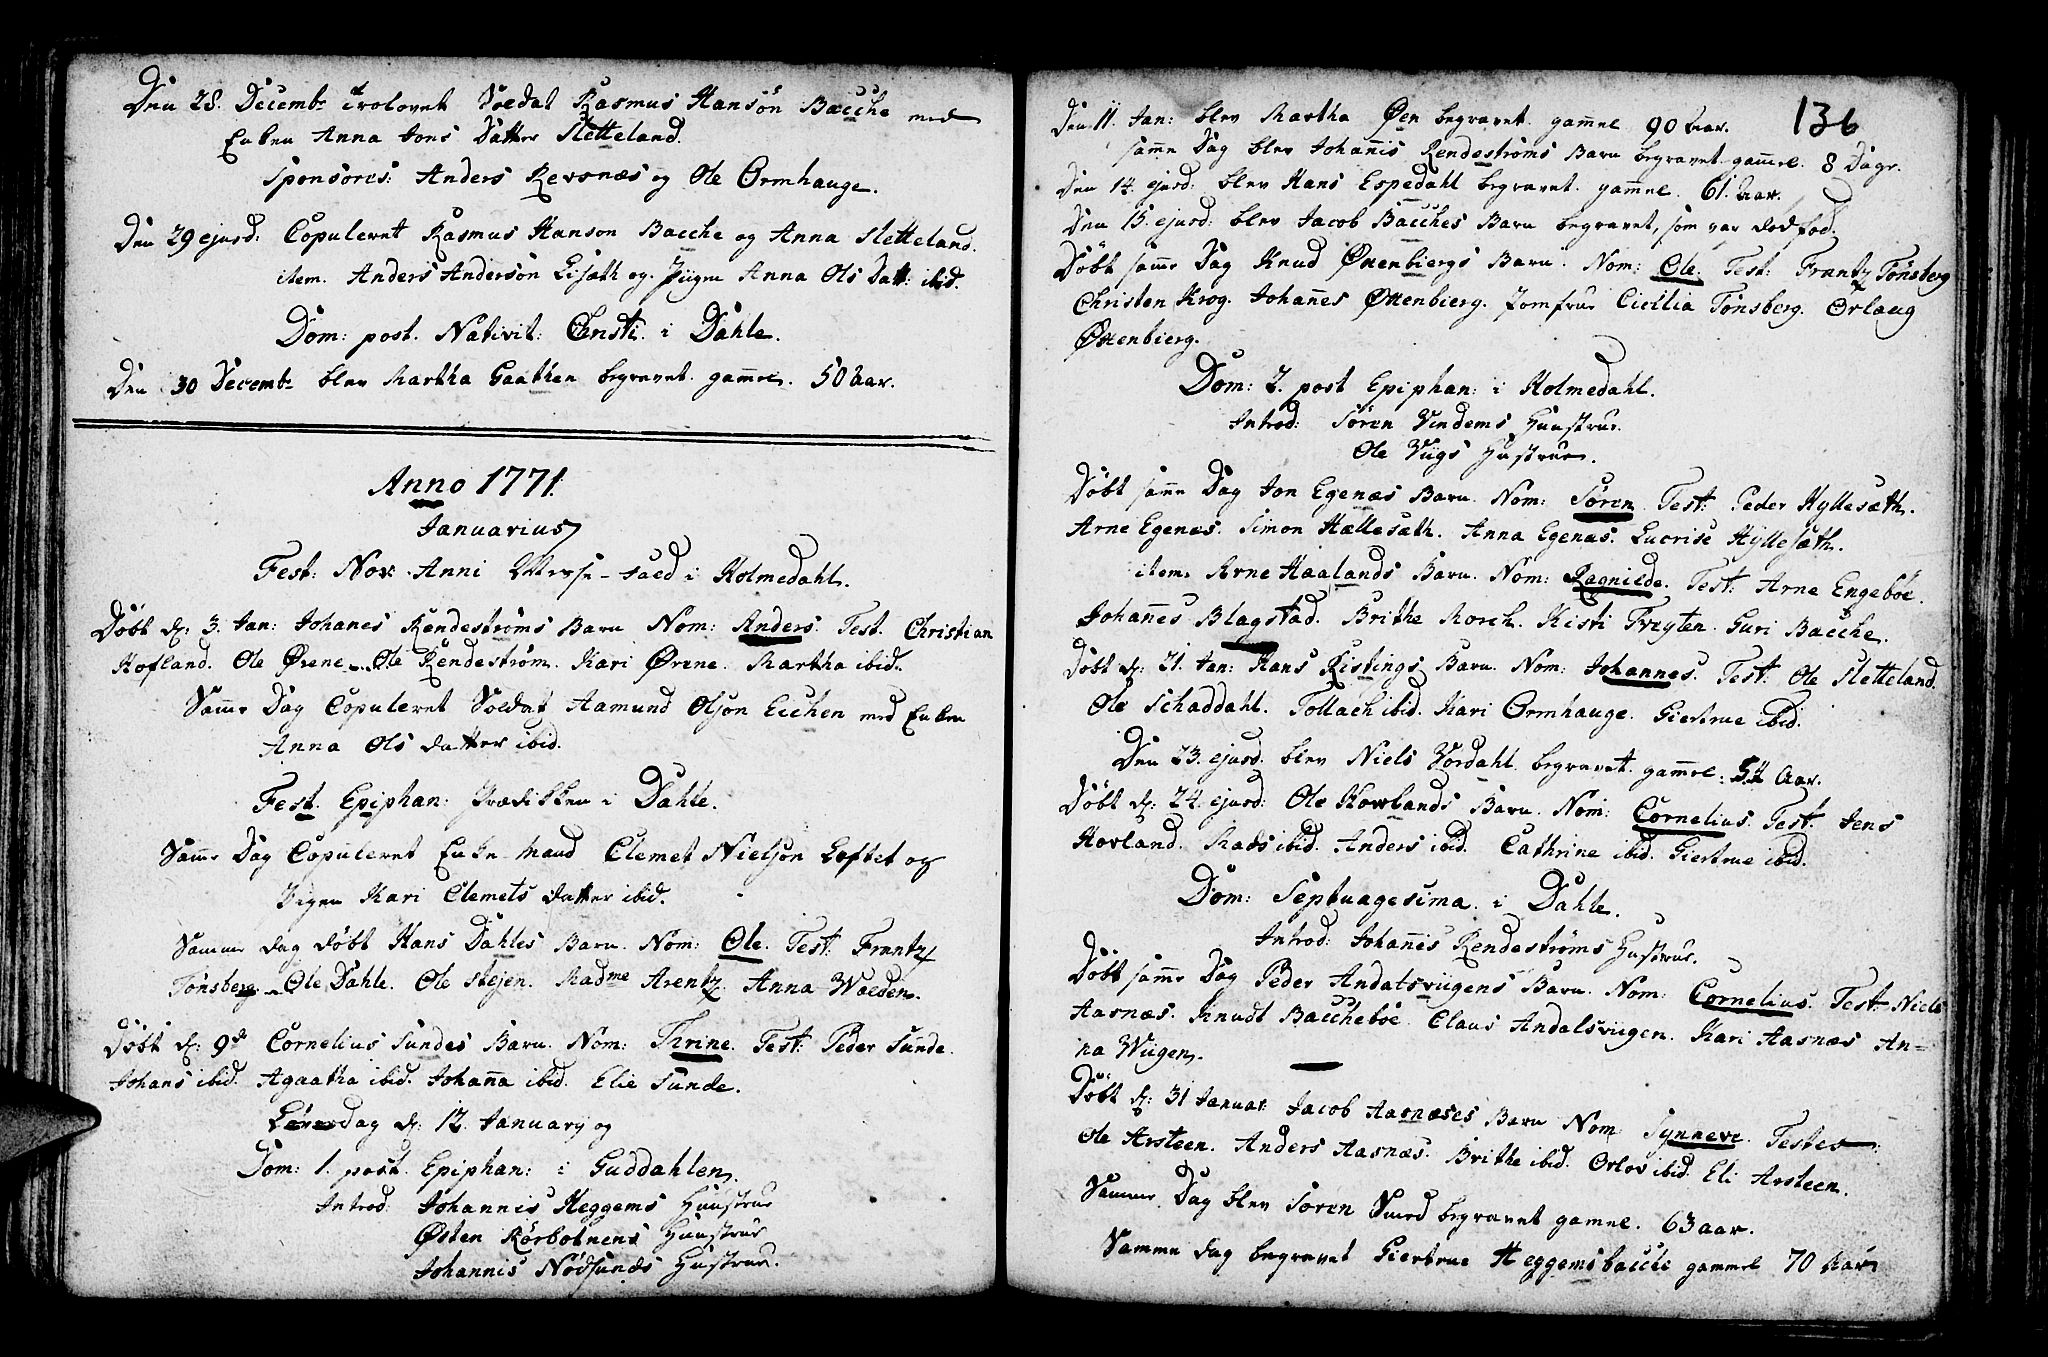 Den 28. Decembr trolovet Soldat Rasmus Hansøn Bacche med
Enken Anna Jons Datter Sletteland.
Sponsores: Anders Revsnæs og Ole Ormhauge.
Den 29 ejusd: Copuleret Rasmus Hanson Bacche og Anna Sletteland.
item. Anders Andersøn Lisæth og Piigen Anna Ols Datt: ibid.
Dom: post. Nativit: Christi i Dahle.
Den 30 Decembr blev Martha Gaathen begravet gamel. 50 aar.
Anno 1771.
Januarius
Fest: Nov. Anni Messe-fald i Holmedahl.
Døbt d: 3. Jan: Johanes Rendestrøms Barn Nom: Anders. Test. Christian
Hofland. Ole Ørene. Ole Rendestrøm. Kari Ørene. Martha ibid.
Samme Dag Copuleret Soldat Aamund Olsøn Eichen med Enken
Anna Ols datter ibid.
Fest. Epiphan: Prædiken i Dahle.
Samme Dag Copuleret Enke-Mand Clemet Nielsøn Loftet og
Pigen Kari Clemets datter ibid.
Samme dag døbt Hans Dahles Barn. Nom: Ole. Test: Frantz
Tønsberg. Ole Dahle. Ole Stejen. Madme Arentz. Anna Wolden.
Døbt d: 9de Cornelius Sundes Barn. Nom: Thrine. Test: Peder Sunde.
Johans ibid. Agaatha ibid. Johana ibid. Elie Sunde.
Løverdag d: 12. January og
Dom: 1. post. Epiphan: i Guddahlen.
Introd: Johannis Heggems Huustrue
Østen Rørbotnens Huustrue
Johannis Nødsunds Hustrue.
136
Den 11. Jan: blev Martha Øen begravet gamel 90 aar.
same Dag blev Johanis Rendestrøms Barn begravet gamel. 8 Dage.
Den 14. ejusd: blev Hans Espedahl begravet gamel. 61. aar.
Den 15. ejusd: blev Jacob Bacches Barn begravet, som var dødfød.
Døbt same Dag Knud Ottenbiergs Barn. Nom: Ole. Test: Frantz Tønsberg
Christen Krog. Johanes Ottenbierg. Jomfrue Cicillia Tønsberg. Orlaug
Ottenbierg.
Dom: 2. post Epiphan: i Holmedahl.
Introd: Søren Vindems Huustrue.
Ole Viigs Hustrue.
Døbt same Dag Jon Egenæs Barn. Nom: Søren. Test: Peder Hyllesæth.
Arne Egenæs. Simon Hællesæth. Anna Egenæs. Lucrise Hyllesæth.
item. Arne Haalands Barn. Nom: Ragnilde. Test: Arne Engebøe.
Johanes Blagstad. Brithe Morch. Kisti Frøyten. Guri Bacche.
Døbt d: 21. Jan: Hans Ristings Barn. Nom: Johannes. Test: Ole Sletteland.
Ole Schaddahl. Tollach ibid. Kari Ormhauge. Giertrue ibid.
Den 23. ejusd. blev Niels Vordahl begravet gamel: 54 Aar.
Døbt d: 24. ejusd: Ole Hovlands Barn. Nom: Cornelius. Test. Jens
Hovland. Mads ibid. Anders ibid. Cathrine ibid. Giertrue ibid.
Dom: Septuagesima i Dahle.
Introd: Johanis Rendestrøms Hustrue.
Døbt same Dag Peder Andalsviigens Barn. Nom: Cornelius. Test: Niels
Aasnæs. Knudt Baccheböe. Claus Andalsviigen. Kari Aasnæs An-
na Wiigen.
Døbt d: 31 Januar Jacob Aasnæses Barn Nom: Synneve. Testes:
Ole Arsteen. Anders Aasnæs. Brithe ibid. Orlov ibid. Eli Arsteen.
Samme Dag blev Soren Smed begravet gamel. 63 aar.
Samme dag begravet Giertrue Heggemsbacche gammel 70 Aar